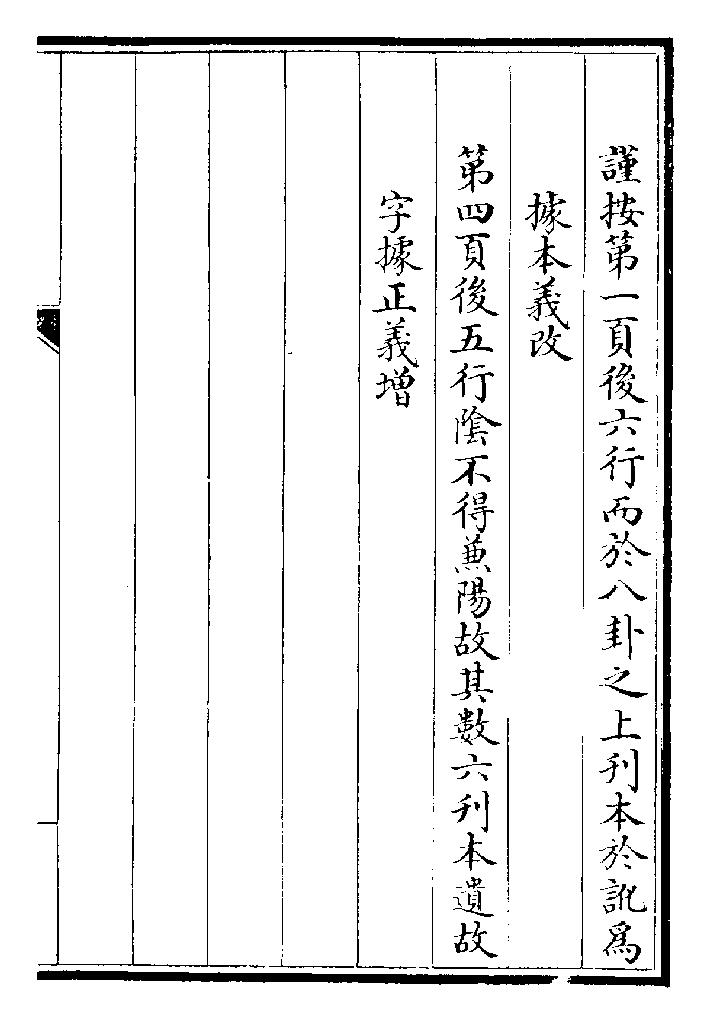 謹按第一頁後六行而於八卦之上刋本於訛爲
據本義改
第四頁後五行陰不得兼陽故其數六刋本遺故
字據正義增